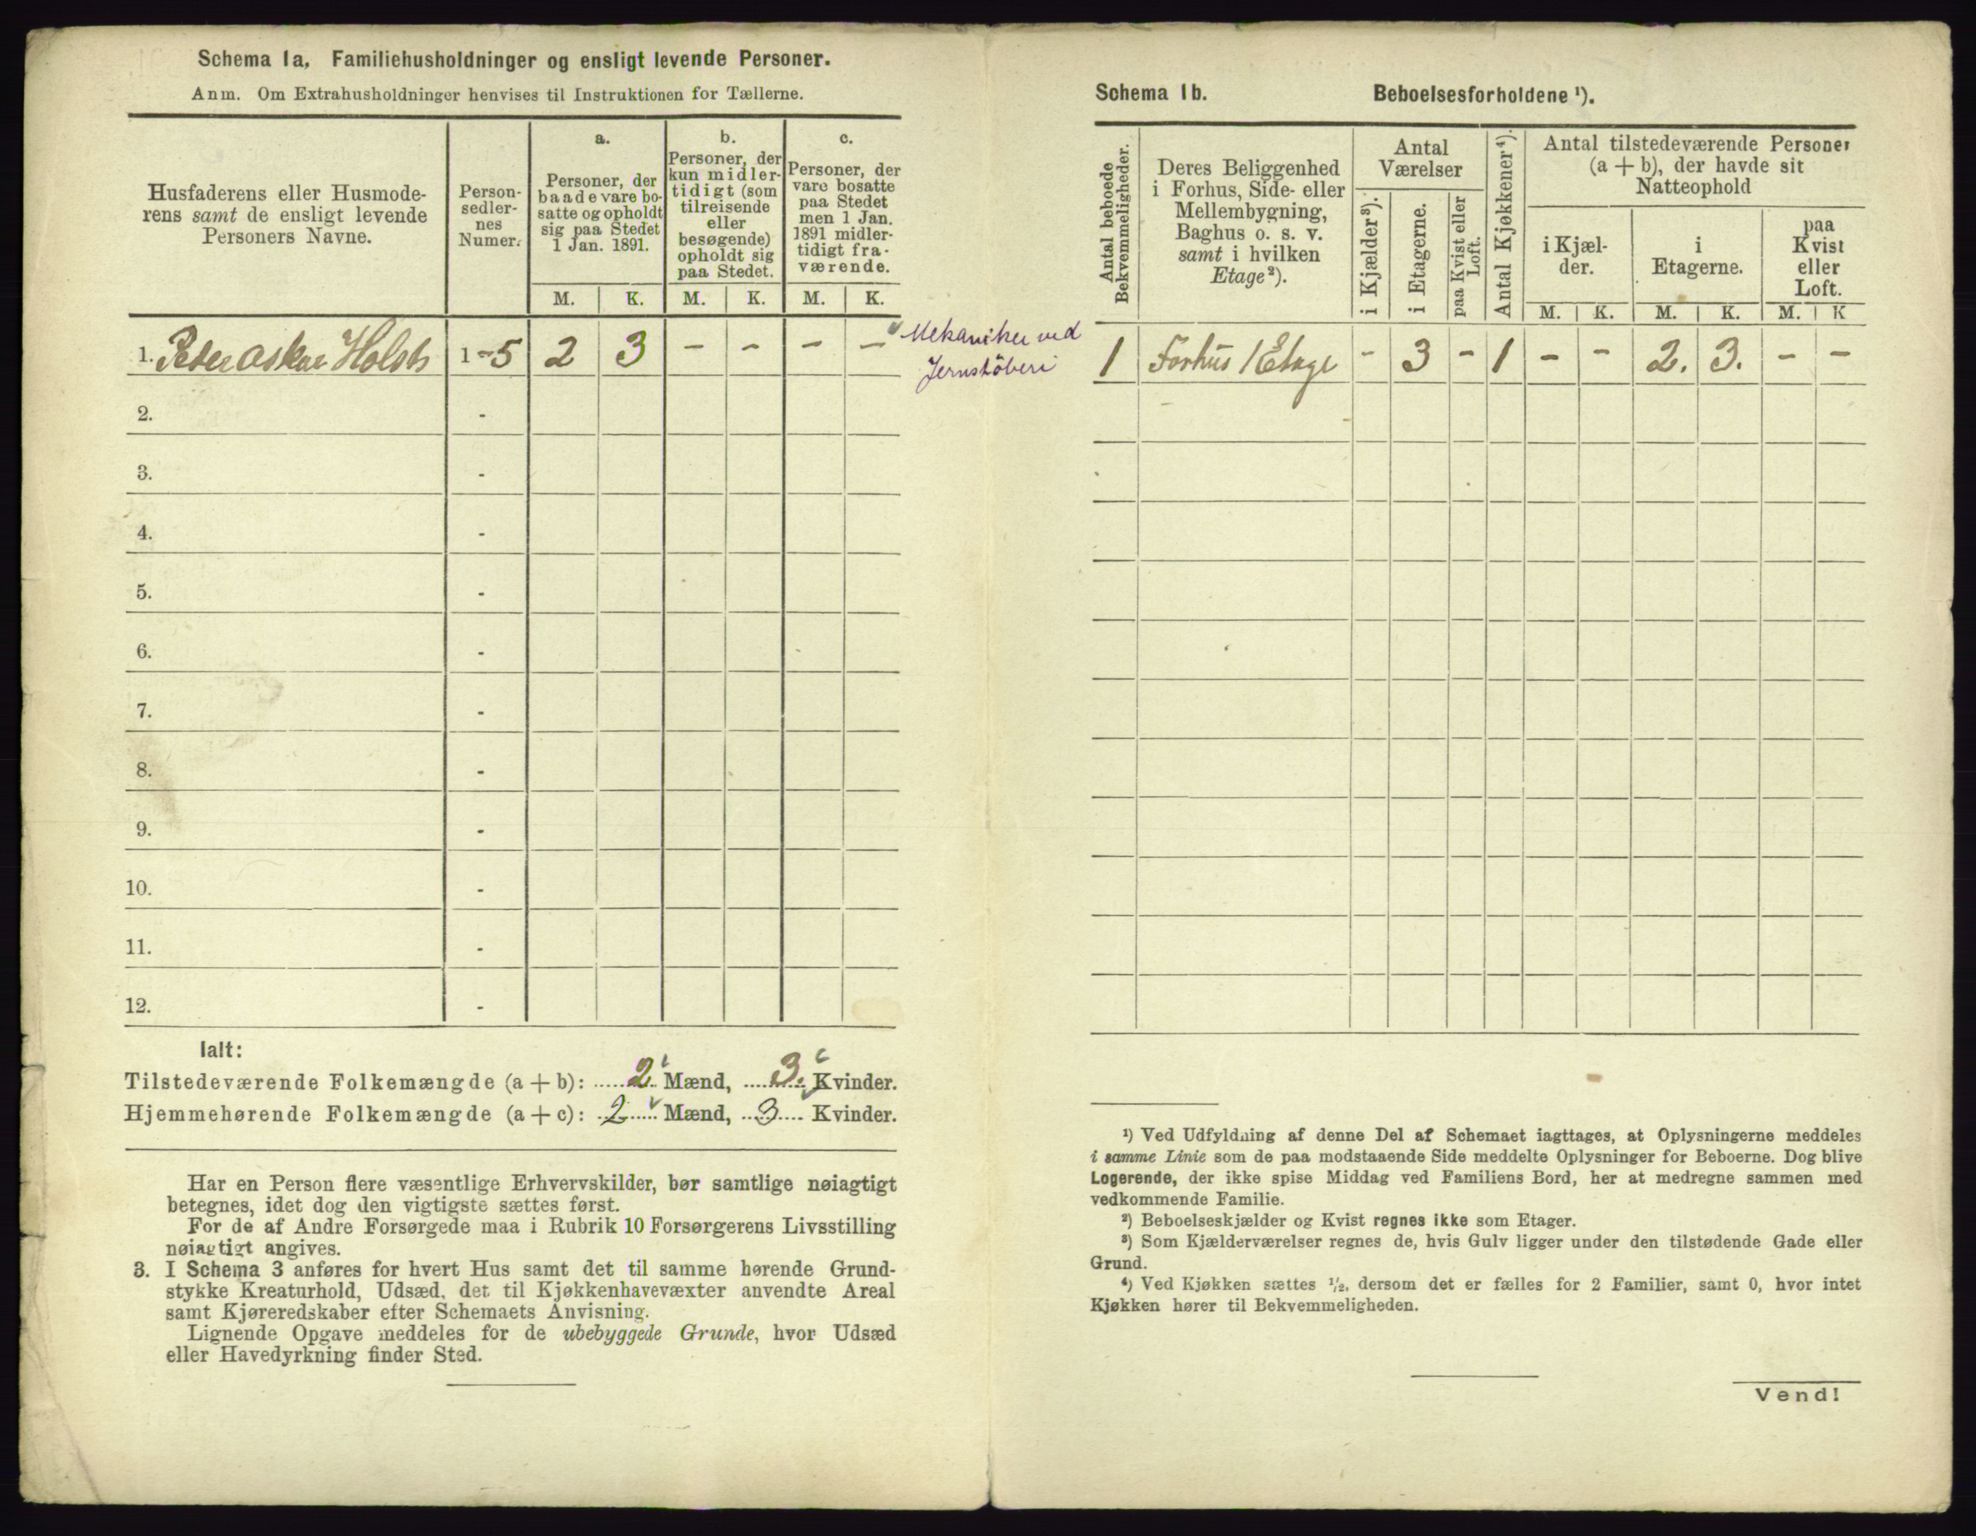 Schema 1a, Familiehusholdninger og ensligt levende Personer.
Anm. Om Extrahusholdninger henvises til Instruktionen for Tællerne.
Husfaderens eller Husmode-
rens samt de ensligt levende
Personers Navne.
Person-
sedler-
nes
Numer.
a.
Personer, der
baade vare bo-
satte og opholdt
sig paa Stedet
1 Jan. 1891.
M. K.
b.
Personer, der
kun midler-
tidigt (som
tilreisende
eller
besøgende)
opholdt sig
paa Stedet.
M. K.
c.
Personer, der
vare bosatte
paa Stedet
men 1 Jan.
1891 midler-
tidigt fra-
værende.
M. K.
1. Peter Oskar Holst 1 - 5 2 3 - - - - Mekaniker ved
Jernstøberi
2. -
3. -
4. -
5. -
6. -
7. -
8. -
9. -
10. -
11. -
12. -
Ialt:
Tilstedeværende Folkemængde (a + b): 2 Mænd, 3. Kvinder.
Hjemmehørende Folkemængde (a + c): 2 Mænd, 3 Kvinder.
Har en Person flere væsentlige Erhvervskilder, bør samtlige nøiagtigt
betegnes, idet dog den vigtigste sættes først.
For de af Andre Forsørgede maa i Rubrik 10 Forsørgerens Livsstilling
nøiagtigt angives.
3. I Schema 3 anføres for hvert Hus samt det til samme hørende Grund-
stykke Kreaturhold, Udsæd, det til Kjøkkenhavevæxter anvendte Areal
samt Kjøreredskaber efter Schemaets Anvisning.
Lignende Opgave meddeles for de ubebyggede Grunde, hvor Udsæd
eller Havedyrkning finder Sted.
Schema 1b. Beboelsesforholdene ¹).
Antal beboede
Bekvemmeligheder.
Deres Beliggenhed
i Forhus, Side- eller
Mellembygning,
Baghus o. s. v.
samt i hvilken
Etage²).
Antal
Værelser
i Kjælder³).
i Etagerne.
paa Kvist eller
Loft.
Antal Kjøkkener⁴).
Antal tilstedeværende Personer
(a + b), der havde sit
Natteophold
i Kjæl-
der.
M. K.
i
Etagerne.
M. K.
paa
Kvist
eller
Loft.
M. K
1 Forhus 1 Etage - 3 - 1 - - 2. 3. - -
¹) Ved Udfyldning af denne Del af Schemaet iagttages, at Oplysningerne meddeles
i samme Linie som de paa modstaaende Side meddelte Oplysninger for Beboerne. Dog blive
Logerende, der ikke spise Middag ved Familiens Bord, her at medregne sammen med
vedkommende Familie.
²) Beboelseskjælder og Kvist regnes ikke som Etager.
³) Som Kjælderværelser regnes de, hvis Gulv ligger under den tilstødende Gade eller
Grund.
⁴) Ved Kjøkken sættes ½, dersom det er fælles for 2 Familier, samt 0, hvor intet
Kjøkken hører til Bekvemmeligheden.
Vend!